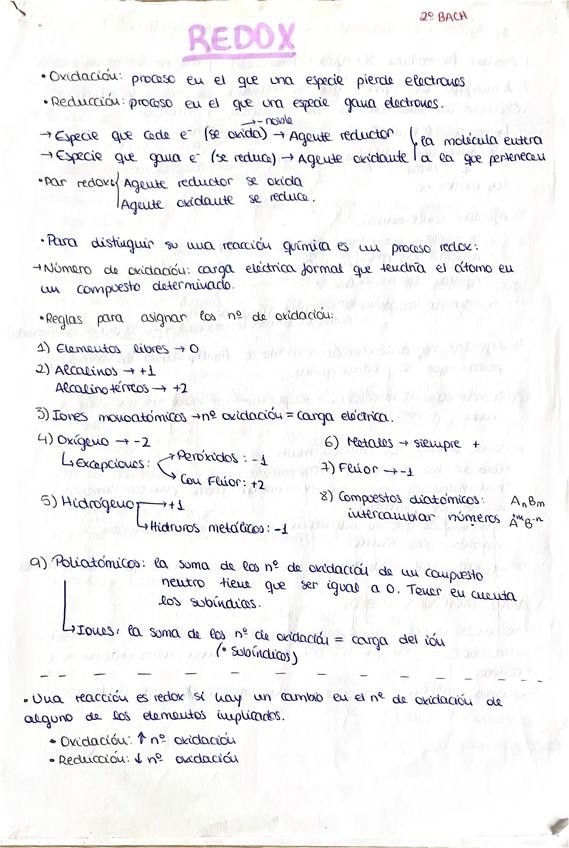 2º BACH.
REDOX
• Oxidación: proceso en el que una especie pierde electrones
• Reducción: proceso en el que una especie gana electrones.
→ Especie que cede e⁻ (se oxida) → Agente reductor
→ Especie que gana e⁻ (se reduce) → Agente oxidante
la molécula entera
a la que pertenecen
• Par redox { Agente reductor se oxida
Agente oxidante se reduce.
• Para distinguir si una reacción química es un proceso redox:
→ Número de oxidación: carga eléctrica formal que tendría el átomo en
un compuesto determinado.
• Reglas para asignar los nº de oxidación:
1) Elementos libres → 0
2) Alcalinos → +1
Alcalinotérreos → +2
3) Iones monoatómicos → nº oxidación = carga eléctrica.
4) Oxígeno → -2
↳ Excepciones: → Peróxidos: -1
→ Con Flúor: +2
5) Hidrógeno → +1
↳ Hidruros metálicos: -1
6) Metales → siempre +
7) Flúor → -1
8) Compuestos diatómicos: AₙBₘ
intercambian números A⁺ᵐB⁻ⁿ
9) Poliatómicos: la suma de los nº de oxidación de un compuesto
neutro tiene que ser igual a 0. Tener en cuenta
los subíndices.
↳ Iones: la suma de los nº de oxidación = carga del ión
(• subíndices)
• Una reacción es redox si hay un cambio en el nº de oxidación de
alguno de los elementos implicados.
• Oxidación: ↑ nº oxidación
• Reducción: ↓ nº oxidación